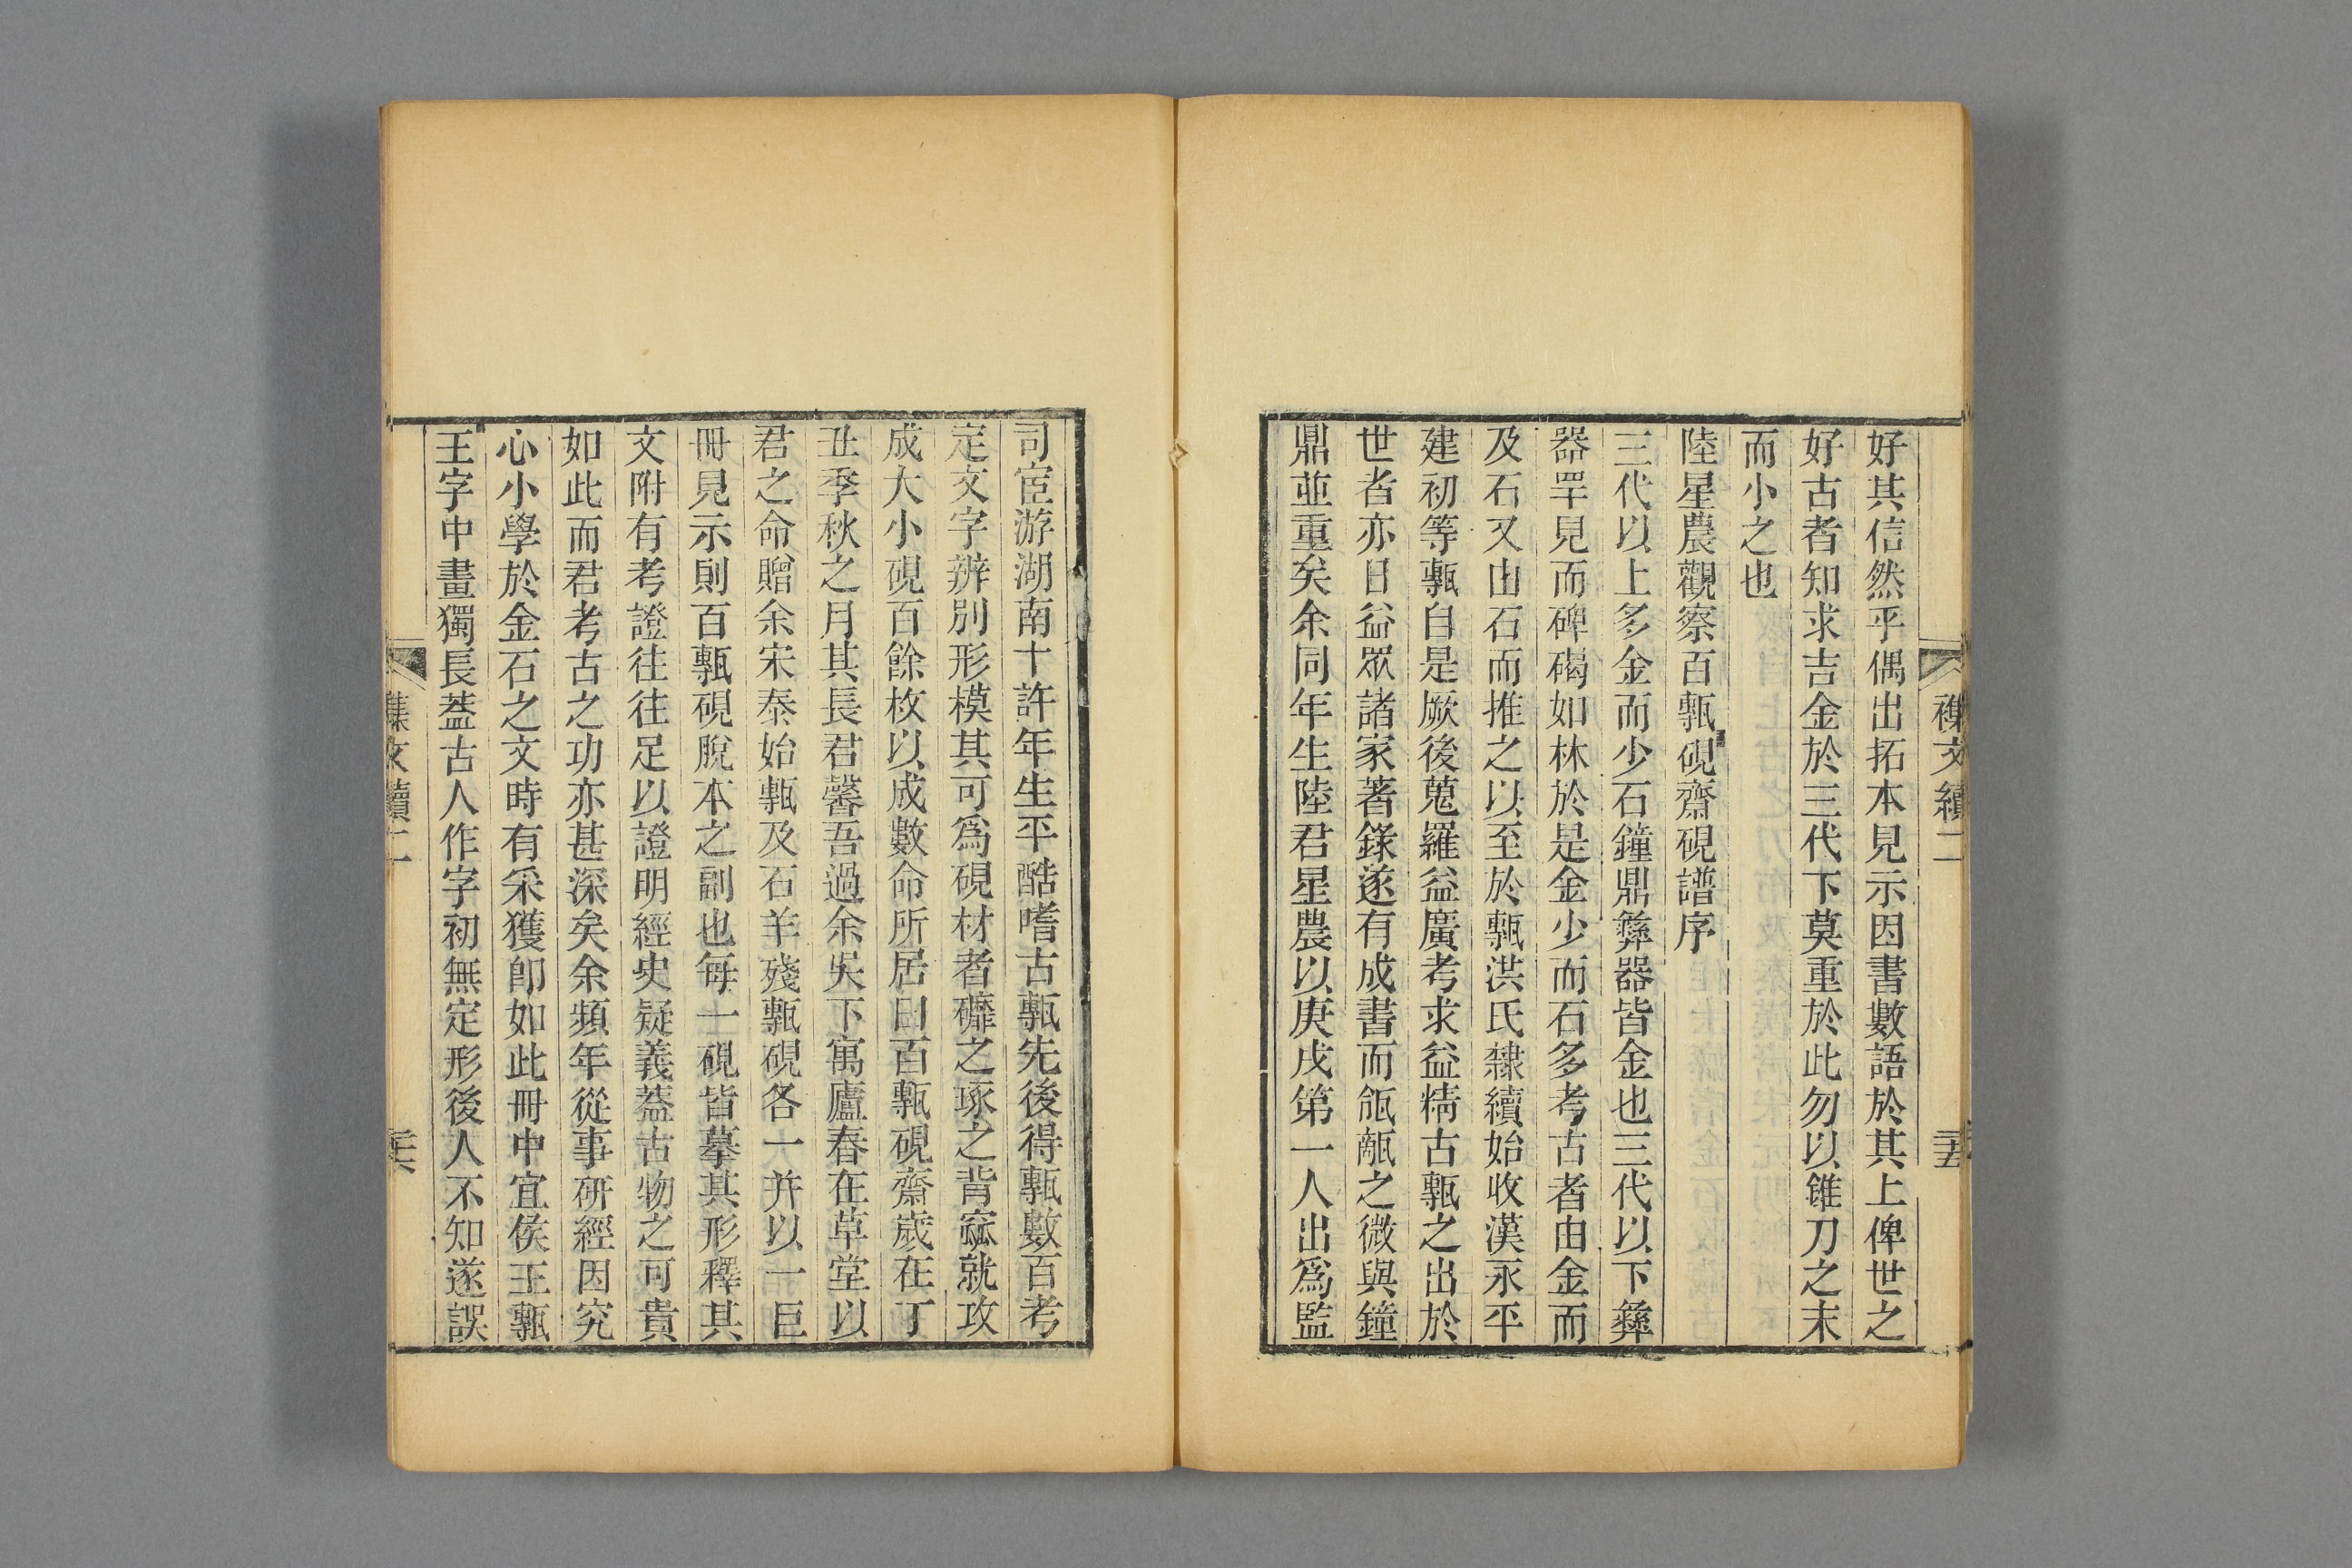 襍文續二
二十五
好其信然乎偶出拓本見示因書數語於其上俾世之
好古者知求吉金於三代下莫重於此勿以錐刀之末
而小之也
陸星農觀察百甎硯齋硯譜序
三代以上多金而少石鐘鼎彝器皆金也三代以下彝
器罕見而碑碣如林於是金少而石多考古者由金而
及石又由石而推之以至於甎洪氏隸續始收漢永平
建初等甎自是厥後蒐羅益廣考求益精古甎之出於
世者亦日益眾諸家著錄遂有成書而瓴甋之微與鐘
鼎並重矣余同年生陸君星農以庚戌第一人出爲監
司宦游湖南十許年生平酷嗜古甎先後得甎數百考
定文字辨別形模其可爲硯材者礲之琢之背窳就攻
成大小硯百餘枚以成數命所居曰百甎硯齋歲在丁
丑季秋之月其長君馨吾過余吳下寓廬春在草堂以
君之命贈余宋泰始甎及石羊殘甎硯各一并以一巨
冊見示則百甎硯脫本之副也每一硯皆摹其形釋其
文附有考證往往足以證明經史疑義葢古物之可貴
如此而君考古之功亦甚深矣余頻年從事研經因究
心小學於金石之文時有采獲卽如此冊中宜侯王甎
王字中畫獨長葢古人作字初無定形後人不知遂誤
襍文續二
二十六